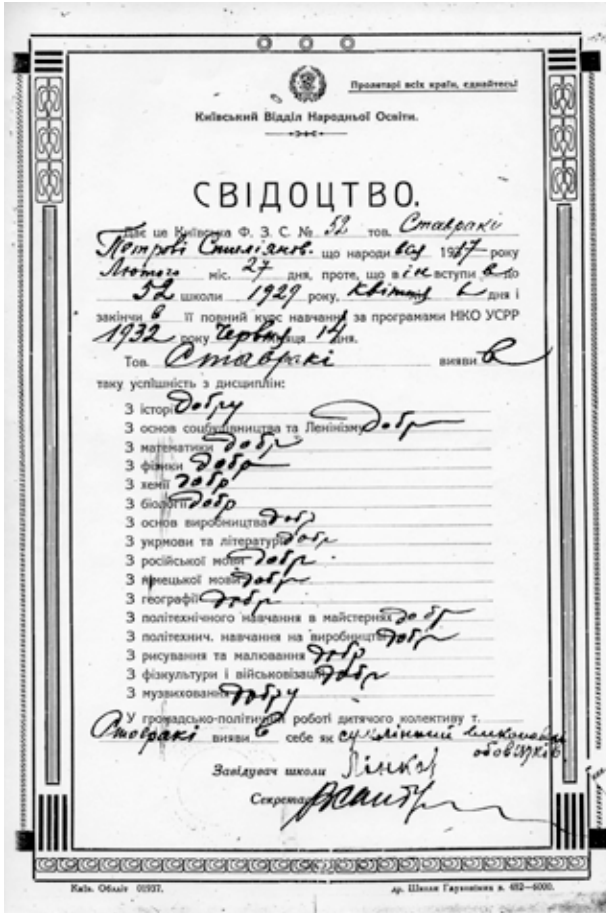 Пролетарі всіх країн, єднайтесь!
Київський Відділ Народньої Освіти.
СВІДОЦТВО.
Дає це Київська Ф. З. С. № 52 тов. Ставракі
Петрові що народивсь 19 7 року
Лютого міс. 27 дня, проте, що він вступив до
52 школи 1929 року, квітня дня і
закінчив її повний курс навчання за програмами НКО УСРР
1932 року Червня місяця 14 дня.
Тов. Ставракі виявив
таку успішність з дисциплін:
З історії добру
З основ соцбудівництва та Ленінізму добр
З математики добр
З фізики добр
З хемії добр
З біології добр
З основ виробництва добр
З укрмови та літератури добр
З російської мови добр
З німецької мови добр
З географії добр
З політехнічного навчання в майстернях добр
З політехнич. навчання на виробництві добр
З рисування та малювання добр
З фізкультури і військовізації добр
З музвиховання добру
У громадсько-політичній роботі дитячого колективу т.
Ставракі виявив себе як сумлінний
обов'язків
Завідувач школи
Секретар
Київ. Обліт 01937.
др. Школи Гарховчик з. 482—6000.